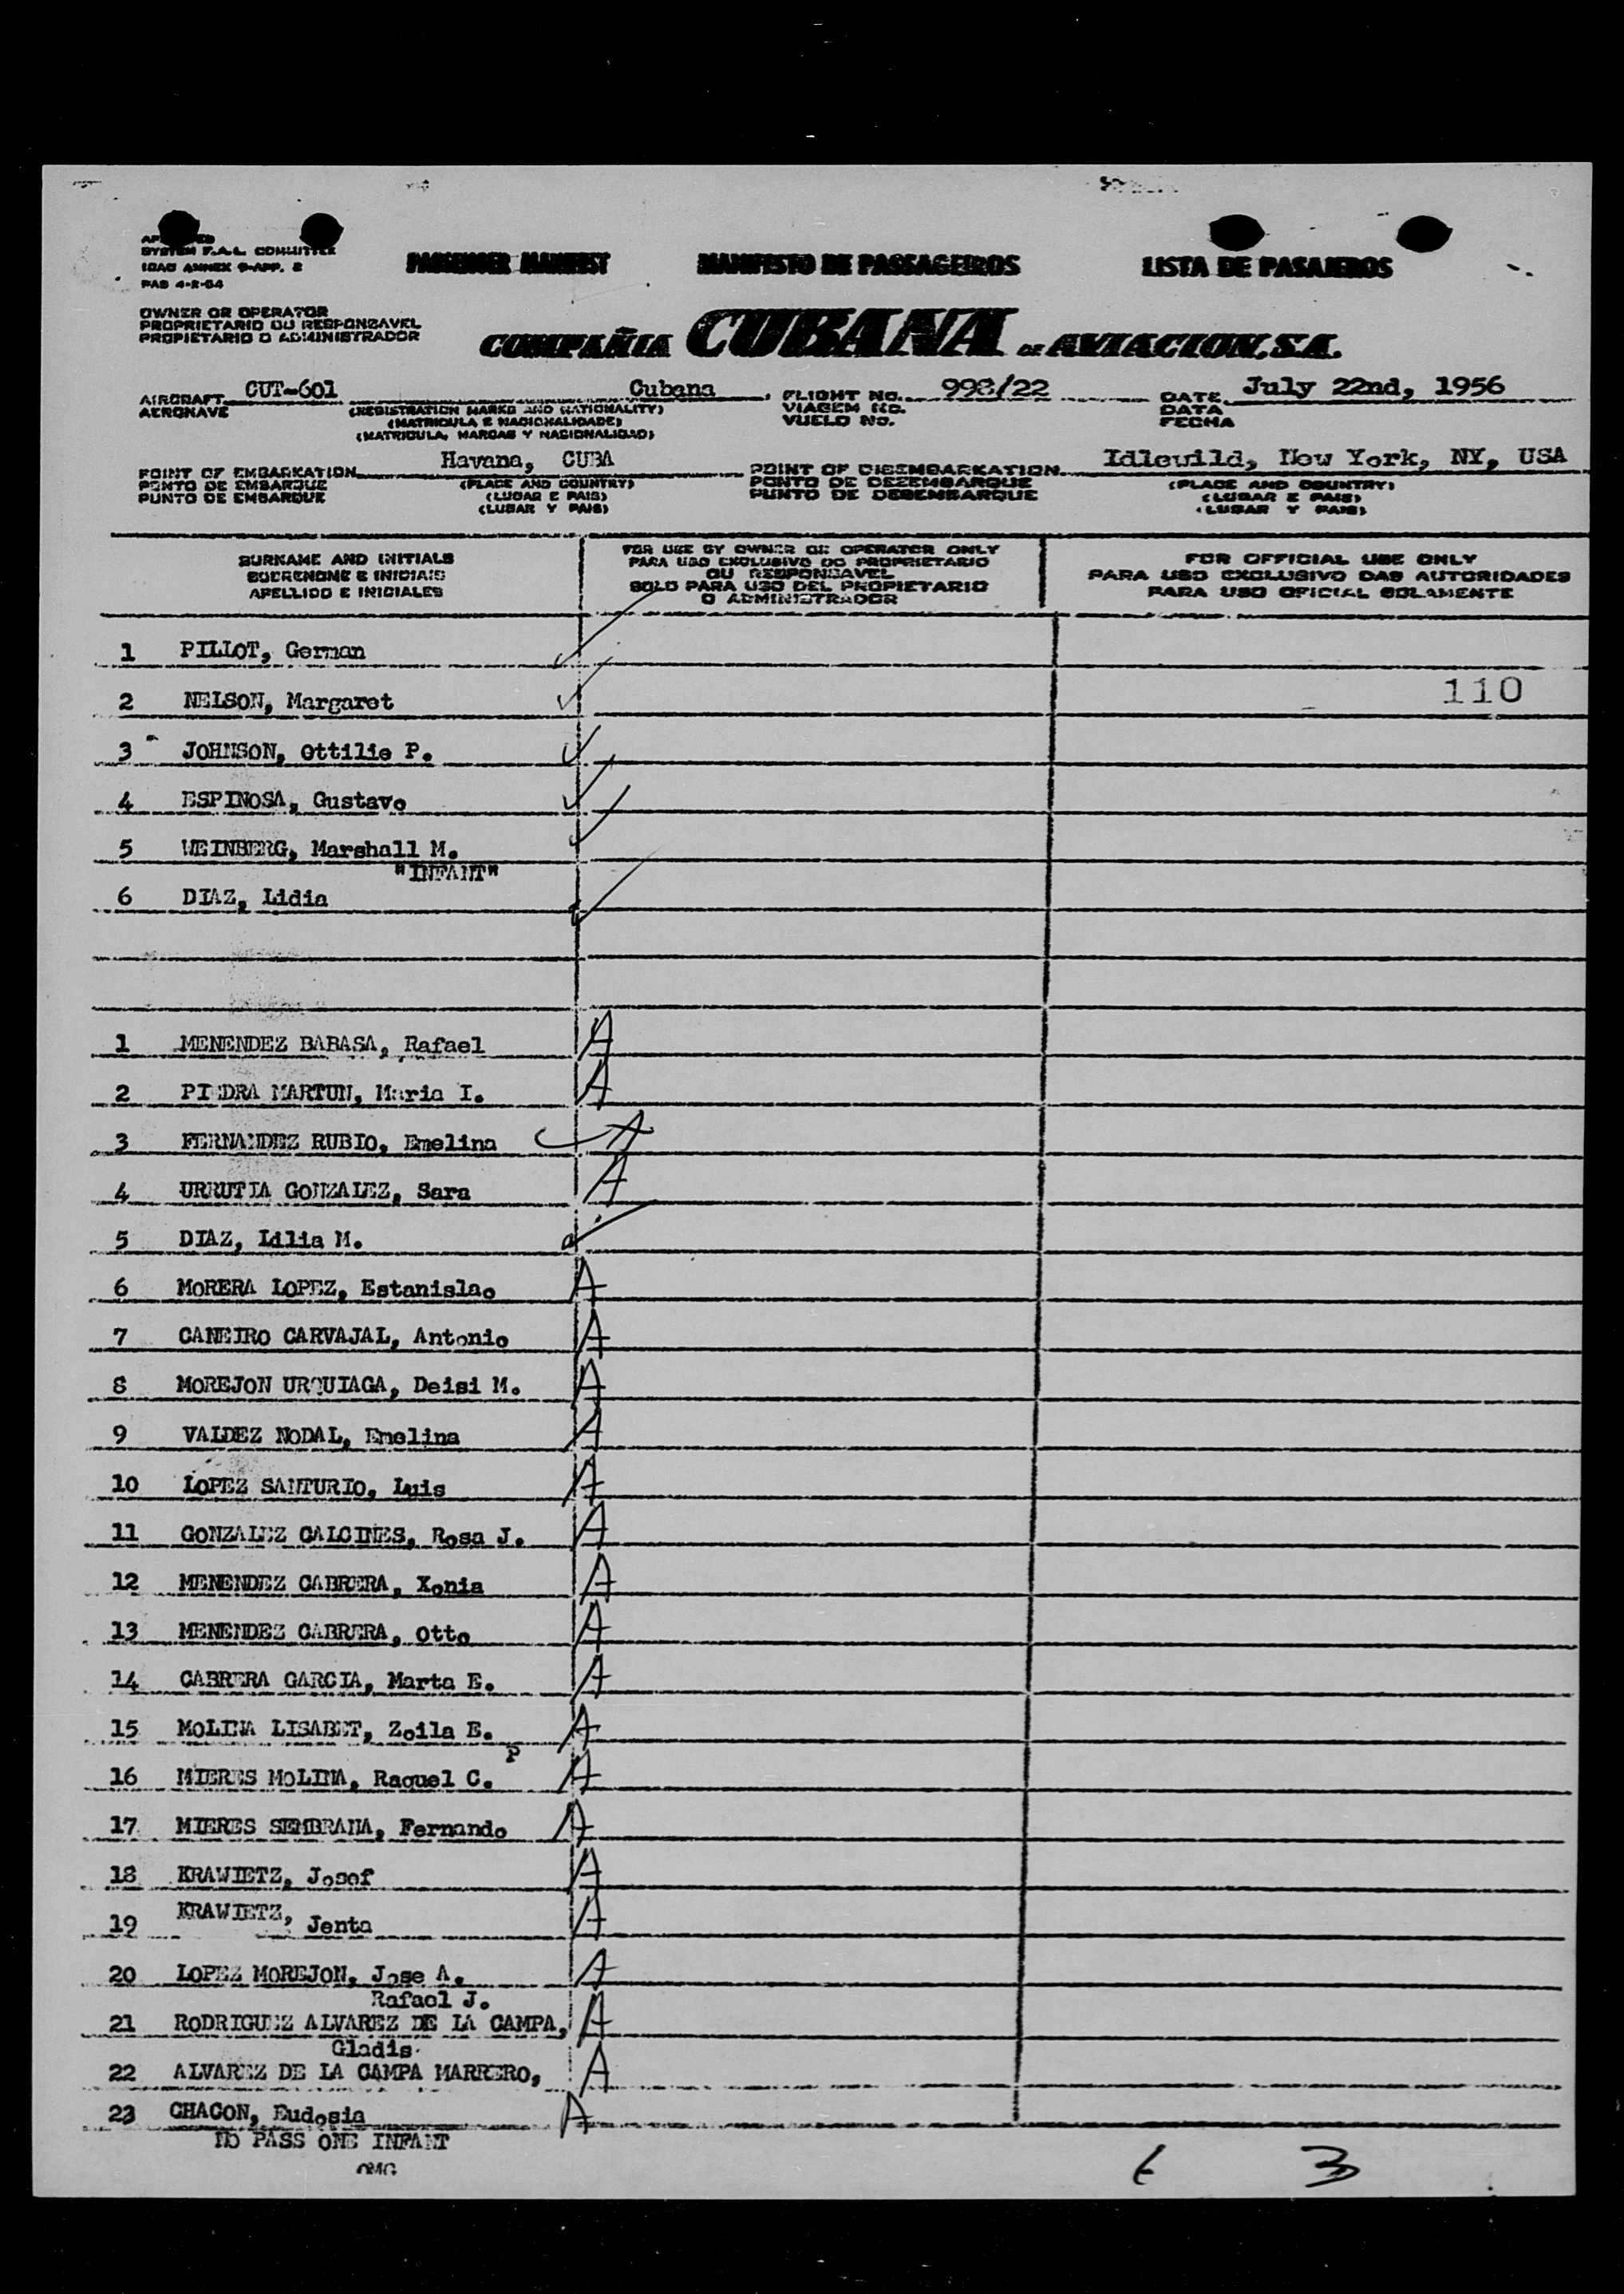 SYSTEM F.A.L. COMMITTEE
ICAO ANNEX 9-APP. 2
PAB 4-2-54
PASSENGER MANIFEST MANIFESTO DE PASSAGEIROS LISTA DE PASAJEROS
OWNER OR OPERATOR
PROPRIETARIO OU RESPONSAVEL
PROPIETARIO O ADMINISTRADOR
COMPAÑIA CUBANA DE AVIACION, S.A.
AIRCRAFT CUT-601 Cubana FLIGHT NO. 998/22 DATE July 22nd, 1956
AERONAVE (REGISTRATION MARKS AND NATIONALITY) VIAGEM NO. DATA
(MATRICULA E NACIONALIDADE) VUELO NO. FECHA
(MATRICULA, MARCAS Y NACIONALIDAD)
POINT OF EMBARKATION Havana, CUBA POINT OF DISEMBARKATION Idlewild, New York, NY, USA
PONTO DE EMBARQUE (PLACE AND COUNTRY) PONTO DE DEZEMBARQUE (PLACE AND COUNTRY)
PUNTO DE EMBARQUE (LUGAR E PAIS) PUNTO DE DESEMBARQUE (LUGAR E PAIS)
(LUGAR Y PAIS) (LUGAR Y PAIS)
SURNAME AND INITIALS
SOBRENOME E INICIAIS
APELLIDO E INICIALES
FOR USE BY OWNER OR OPERATOR ONLY
PARA USO EXCLUSIVO DO PROPRIETARIO
OU RESPONSAVEL
SOLO PARA USO DEL PROPIETARIO
O ADMINISTRADOR
FOR OFFICIAL USE ONLY
PARA USO EXCLUSIVO DAS AUTORIDADES
PARA USO OFICIAL SOLAMENTE
1 PILLOT, German
2 NELSON, Margaret 110
3 JOHNSON, Ottilie P.
4 ESPINOSA, Gustavo
5 WEINBERG, Marshall M.
"INFANT"
6 DIAZ, Lidia
1 MENENDEZ BABASA, Rafael A
2 PIEDRA MARTUN, Maria I. A
3 FERNANDEZ RUBIO, Emelina A
4 URRUTIA GONZALEZ, Sara A
5 DIAZ, Lilia M.
6 MORERA LOPEZ, Estanislao A
7 CANEIRO CARVAJAL, Antonio A
8 MOREJON URQUIAGA, Deisi M. A
9 VALDEZ NODAL, Emelina A
10 LOPEZ SANTURIO, Luis A
11 GONZALEZ CALCINES, Rosa J. A
12 MENENDEZ CABRERA, Xonia A
13 MENENDEZ CABRERA, Otto A
14 CABRERA GARCIA, Marta E. A
15 MOLINA LISABET, Zoila E. A
P
16 MIERES MOLINA, Raquel C. A
17 MIERES SEMBRANA, Fernando A
18 KRAWIETZ, Josef A
19 KRAWIETZ, Jenta A
20 LOPEZ MOREJON, Jose A. A
Rafael J.
21 RODRIGUEZ ALVAREZ DE LA CAMPA, A
Gladis
22 ALVAREZ DE LA CAMPA MARRERO, A
23 CHACON, Eudosia A
NO PASS ONE INFANT
OMG
6 3